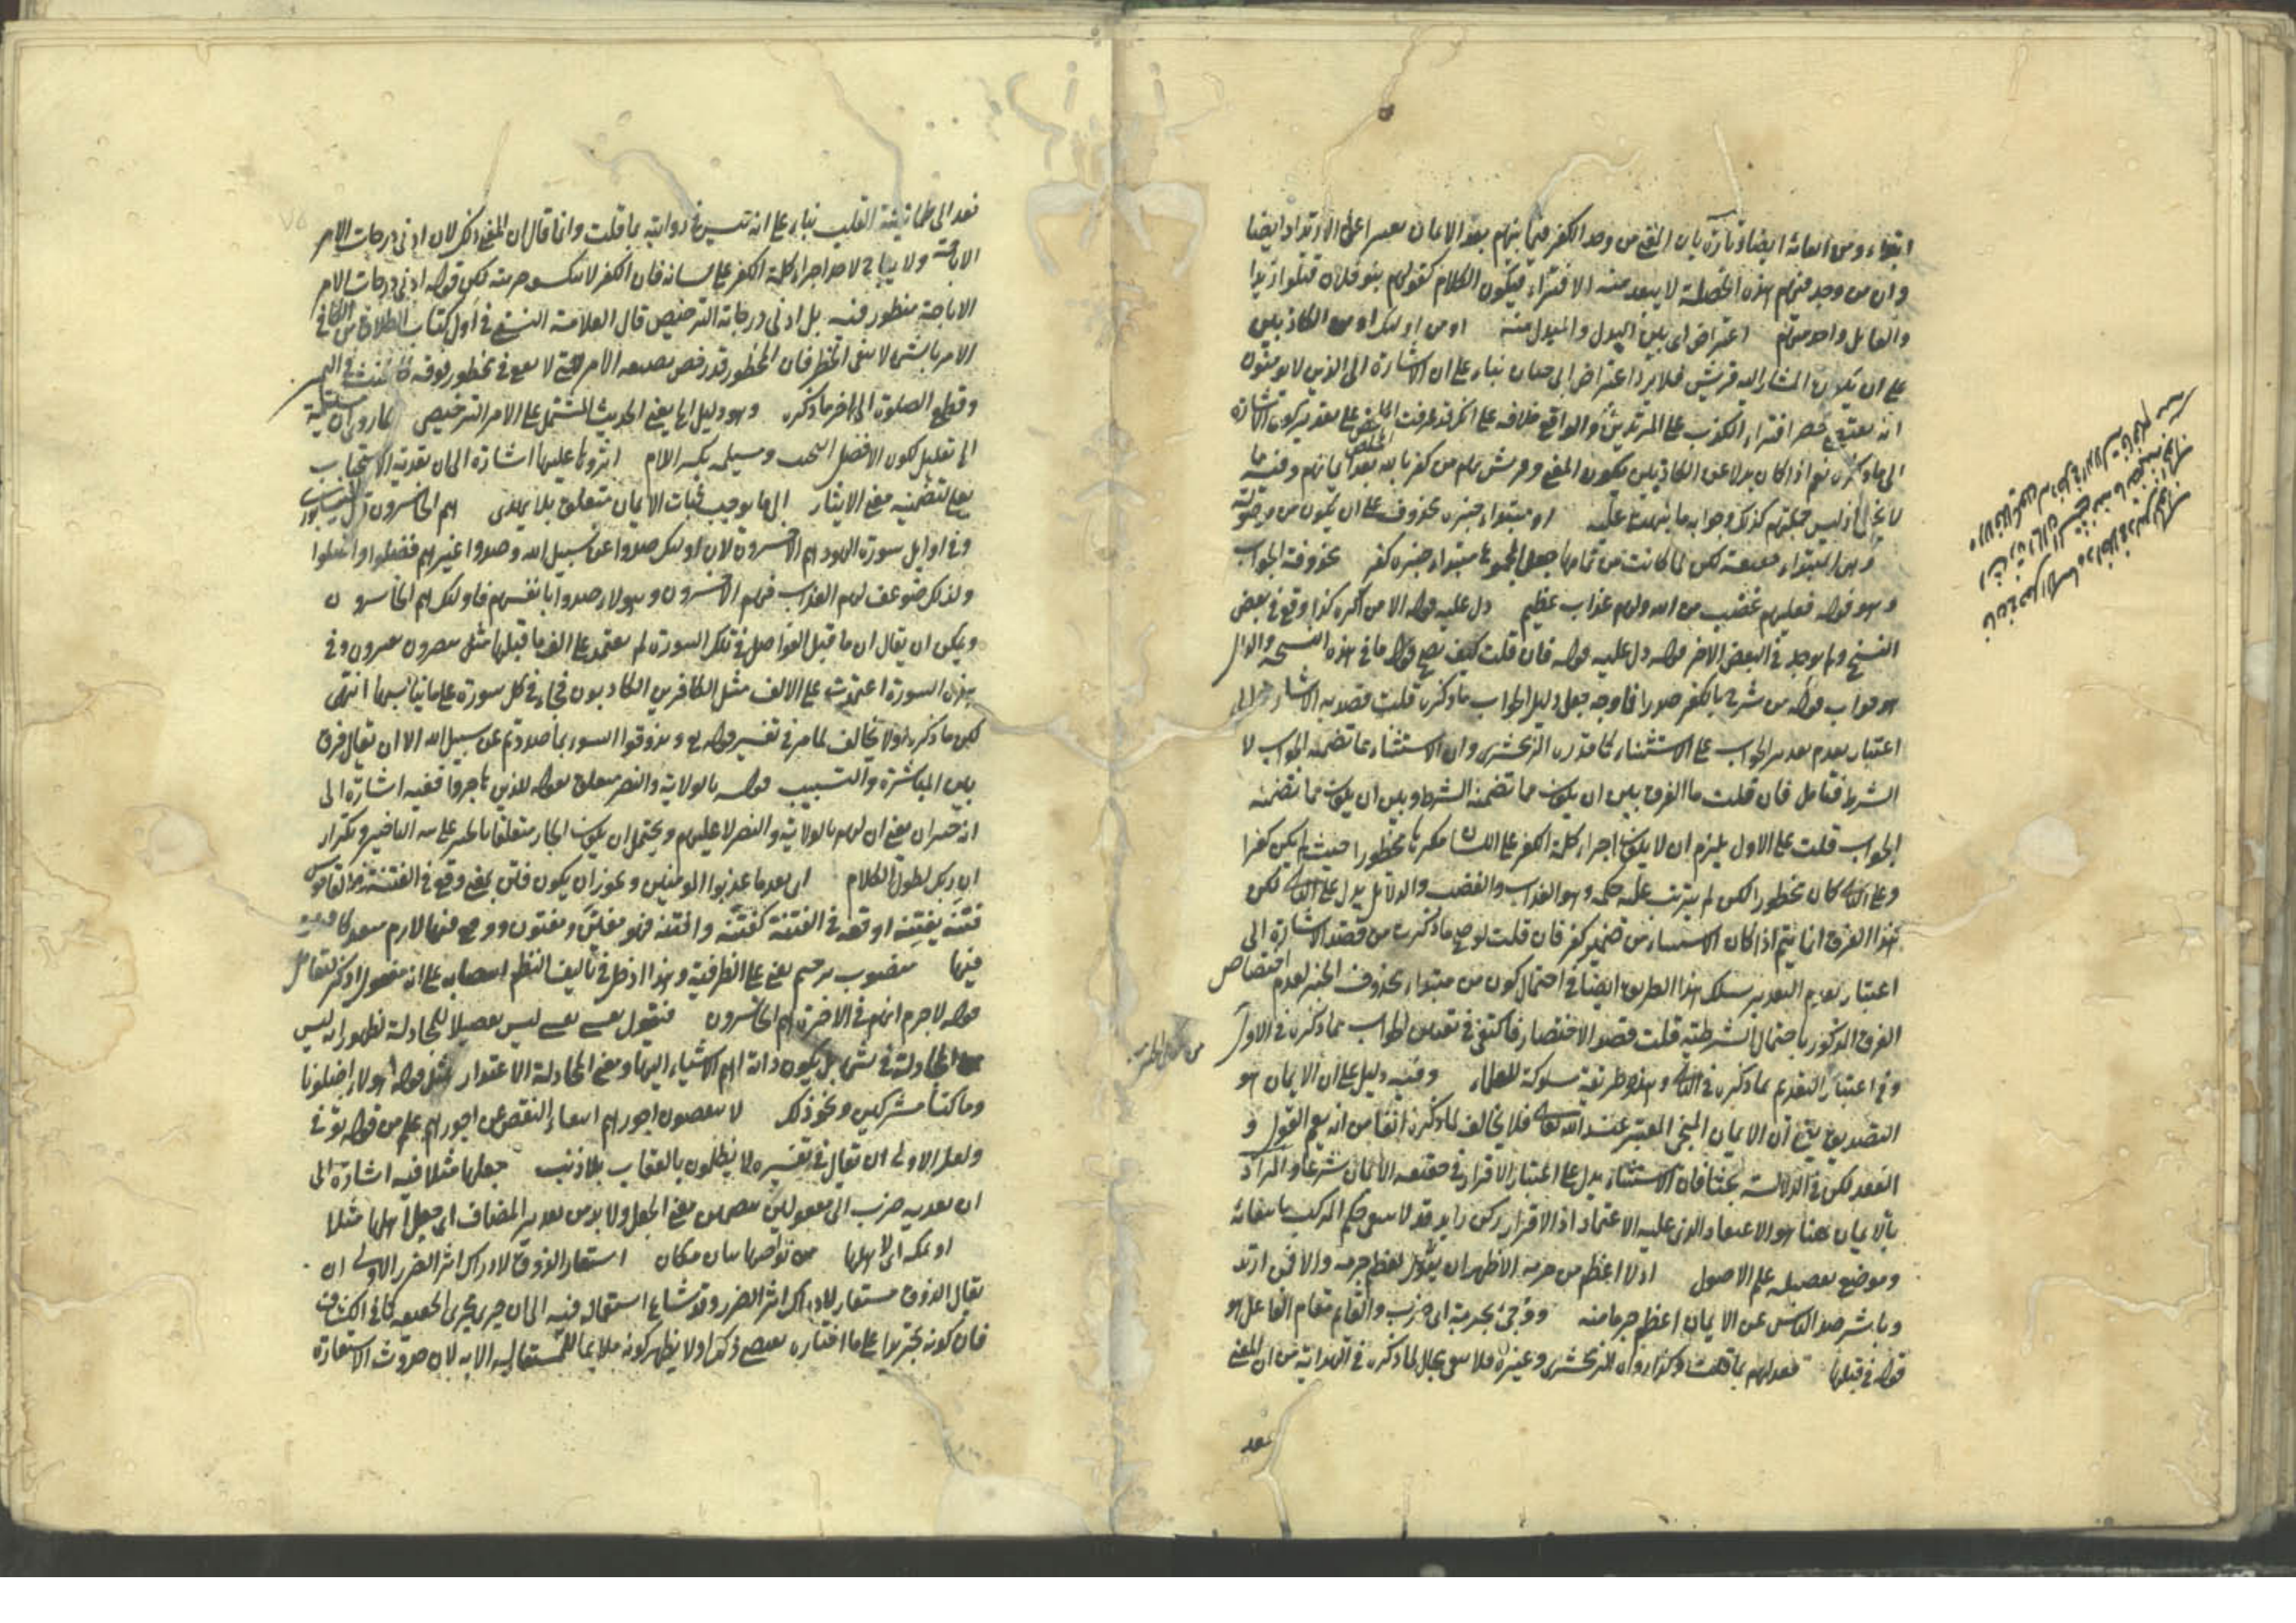 ابتداء ومن اتعاثه ايضا وتارة بان المعنى من وجد الكفر فيما بينهم بعد الايمان اعنى الارتداد ايضا
وان من وجد فيهم هذه الخصلة لا يبعد منه الافتراء فيكون الكلام كقولهم بنو فلان قتلوا زيدا
والقاتل واحد منهم اعتراض اى بين البدل والمبدل منه او من اولئك او من الكاذبين
على ان يكون المشار اليه قريش فلا يرد اعتراض ابى حيان بناء على ان الاشارة الى الذين لا يؤمنون
انه يقتضى حصر افتراء الكذب على المرتدين والواقع خلافه على انك قد عرفت على تقدير كون الاشارة
الى ما ذكره نعم اذا كان بدلا عن الكاذبين يكون المعنى وقريش هم من كفر بالله بعد ايمانهم وفيه ما
لا يخفى اذ ليس كلهم كذلك وجوابه ما نبهت عليه او مبتداء خبره محذوف على ان يكون من موصولة
وهى المبتداء حقيقة لكن لما كانت من تمامها جعل المجموع مبتداء خبره كفر محذوفة الجواب
وهو قوله فعليهم غضب من الله ولهم عذاب عظيم دل عليه قوله الا من اكره كذا وقع فى بعض
النسخ ولم يوجد فى البعض الاخر قوله دل عليه قوله فان قلت كيف يصح قوله ما فى هذه النسخة والدال
هو جواب قوله من شرح بالكفر صدرا فما وجه جعل دليل الجواب ما ذكره قلت قصد به الاشارة الى
اعتبار تقدم تقدير الجواب على الاستثناء كما قدره الزمخشرى وان الاستثناء عما تضمنه الجواب لا
الشرط فتامل فان قلت ما الفرق بين ان يكون مما تضمنه الشرط وبين ان يكون مما تضمنه
الجواب قلت على الاول يلزم ان لا يكون اجراء كلمة الكفر على اللسان مكرها محظورا حيث لم يكن كفرا
وعلى الثانى كان محظورا لكن لم يترتب عليه حكمه وهو العذاب والغضب والدلائل يدل على الثانى لكن
هذا الفرق انما يتم اذا كان الاستثناء من ضمير كفر فان قلت لو صح ما ذكرت من قصد الاشارة الى
اعتبار تقديم التقدير سلك هذا الطريق ايضا فى احتمال كون من مبتداء محذوف الخبر لعدم اختصاص
الفرق المذكور باحتمال الشرطية قلت قصد الاختصار فاكتفى فى تعيين الجواب بما ذكره فى الاول
وفى اعتبار التقديم بما ذكره فى الثانى وهذه طريقة مسلوكة للعلماء وفيه دليل على ان الايمان هو
التصديق يعنى ان الايمان المنجى المعتبر عند الله تعالى فلا يخالف لما ذكره آنفا من انه يعم القول و
العقد لكن فى الدلالة بحثا فان الاستثناء يدل على اعتبار الاقرار فى حقيقة الايمان شرعا والمراد
بالايمان هنا هو الاعتقاد الذى عليه الاعتماد اذ الاقرار ركن زايد قد لا يبقى حكم المركب بانتفائه
وموضع تفصيله علم الاصول اذ لا اعظم من جرمه الاظهر ان يقول لعظم جرمه والا فمن ارتد
وباشر صد الناس عن الايمان اعظم جرما منه
قوله فى قتلها فعد لهم بما قلت وكذا رواه الزمخشرى وغيره فلا يبقى مجال لما ذكره فى الهداية من ان المعنى
فعد
فعد الى طمانينة القلب بناء على انه ليس فى روايته بما قلت وانما قال ان المعنى ذلك لان ادنى درجات الامر
الاباحة ولا يباح لاحد اجراء كلمة الكفر على لسانه فان الكفر لا تنكشف حرمته لكن قوله ادنى درجات الامر
الاباحة منظور فيه بل ادنى درجاته الترخيص قال العلامة النسفى فى اول كتاب الطلاق من الكافى
الامر بالشئ لا ينفى الحظر فان المحظور قد رخص بصيغة الامر حتى لا يقع فى محظور فوقه كالحنث فى اليمين
وقطع الصلوة الى اخر ما ذكره وهو دليل اى يعنى الحديث المشتمل على الامر الترخيص لما روى ان مسيلمة
الى تعليل لكون الافضل التجنب ومسيلمة بكسر اللام اثروها عليها اشارة الى ان تعدية الاستحباب
بعلى لتضمينه معنى الايثار الى ما يوجب ثبات الايمان متعلق بلا يهدى هم الخاسرون قال النيسابورى
وفى اوايل سورة الهود هم الاخسرون لان اولئك صدوا عن سبيل الله وصدوا غيرهم فضلوا واضلوا
ولذلك ضوعف لهم العذاب فهم الاخسرون وهولاء صدوا بانفسهم فاولئك هم الخاسرون
ويمكن ان يقال ان ما قبل الفواصل فى تلك السورة لم يعتمد على الف ما قبلها مثل يبصرون يفترون وفى
هذه السورة اعتمدت على الالف مثل الكافرين الكاذبون فجاء فى كل سورة على ما يناسبها انتهى
لكن ما ذكره اولا يخالف لما مر فى تفسير قوله تع وتذوقوا السوء بما صددتم عن سبيل الله الا ان يقال فرق
بين المباشرة والتسبيب قوله بالولاية والنصر متعلق بقوله للذين هاجروا ففيه اشارة الى
انه خبر ان يعنى ان لهم بالولاية والنصر لا عليهم ويحتمل ان يكون الجار متعلقا بالخبر على نية التاخير وتكرار
ان ربك لطول الكلام اى بعد ما عذبوا المومنين ويجوز ان يكون فتن بمعنى وقع فى الفتنة فى القاموس
فتنه يفتنه اوقعه فى الفتنة كفتنه وافتنه فهو مفتن ومفتون ووقع فيها لازم متعد
فيها منصوب برحيم يعنى على الظرفية وهذا ادخل فى تاليف النظم انتصابه على انه مفعول اذكر لتقابل
قوله لا جرم انهم فى الاخرة هم الخاسرون فنقول نفسى نفسى ليس تفصيلا للمجادلة لظهور انه ليس
المجادلة فى شئ بل لكون ذاته اهم الاشياء اليها ومعنى المجادلة الاعتذار مثل قوله هولاء اضلونا
وما كنا مشركين ونحو ذلك لا ينقصون اجورهم انتفاء النقص عن اجورهم علم من قوله توفى
ولعل الاولى ان يقال فى تفسيره لا يظلمون بالعقاب بلا ذنب جعلها مثلا فيه اشارة الى
ان تعدية ضرب الى مفعولين بتضمين معنى الجعل ولا بد من تقدير المضاف اى جعل اهلها مثلا
او لمكة اى لاهلها من نواحيها بيان مكان استعار الذوق لادراك اثر الضرر الاولى ان
يقال الذوق مستعار لادراك اثر الضرر وقد شاع استعماله فيه الى ان جرى مجرى الحقيقة كما فى الكشاف
فان كونه تجريدا على ما اختاره